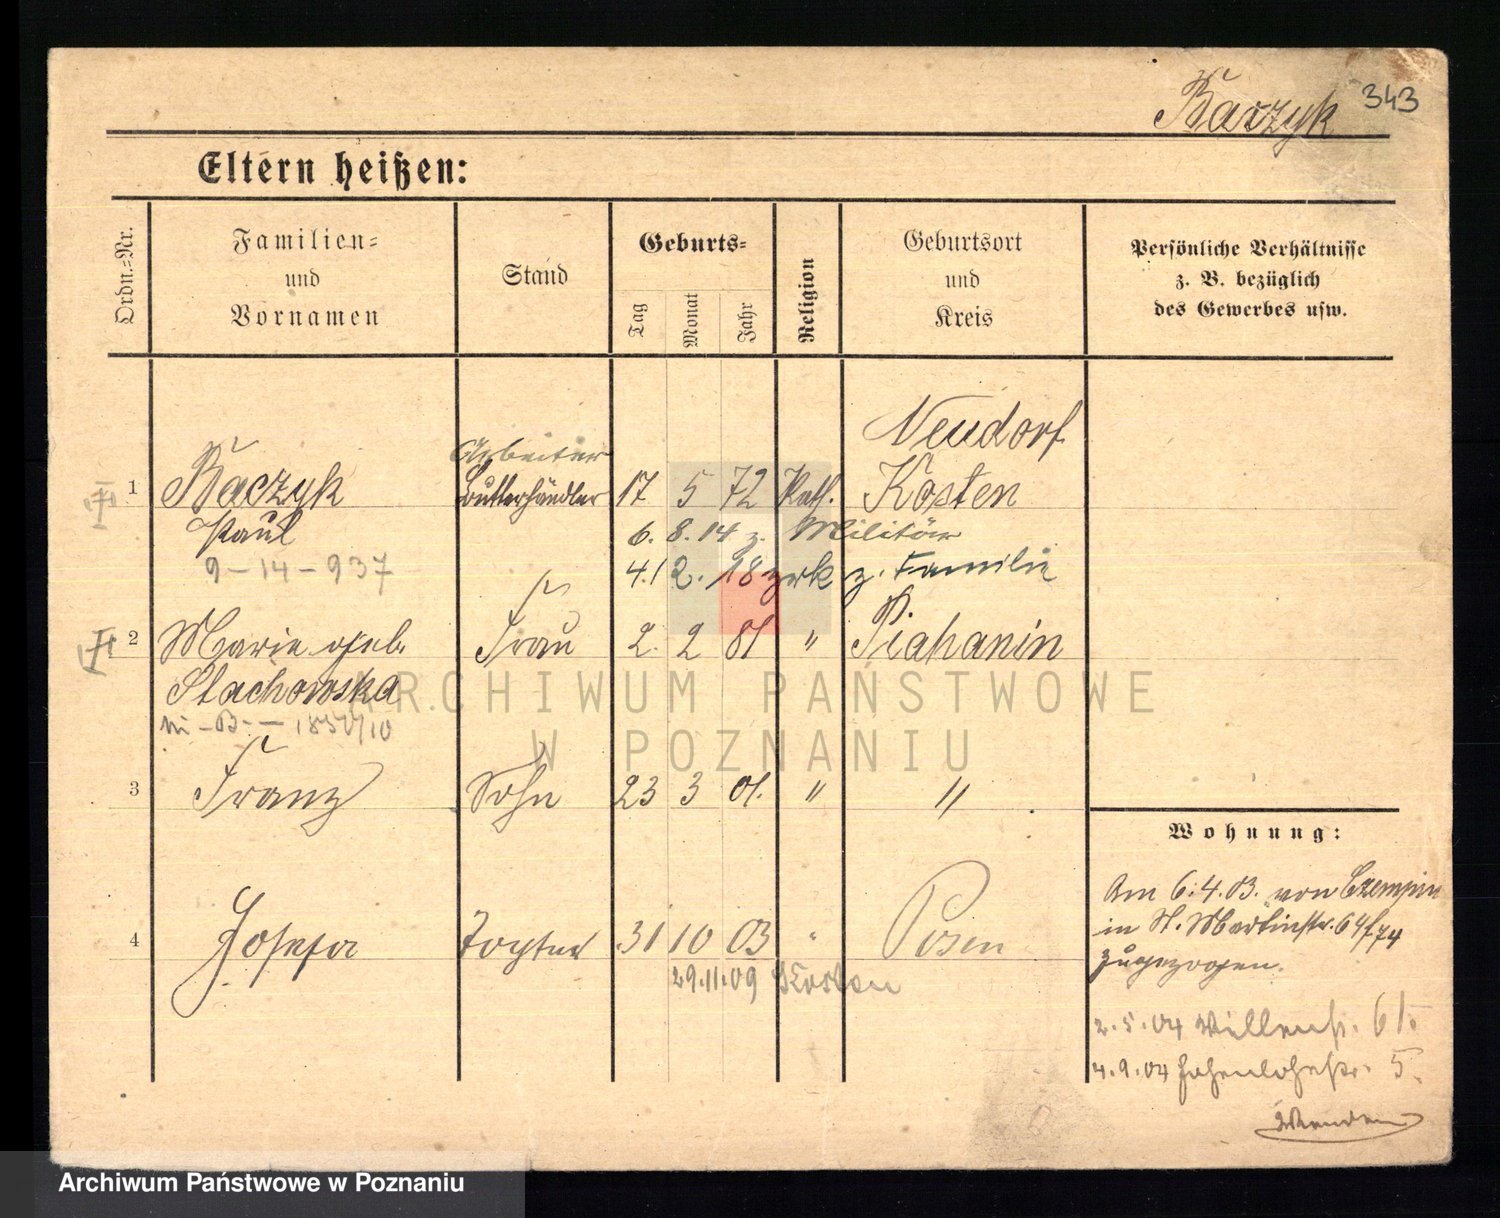 Baczyk 343
Eltern heißen:
Ordn.=Nr.
Familien=
und
Vornamen
Stand
Geburts=
Tag
Monat
Jahr
Religion
Geburtsort
und
Kreis
Persönliche Verhältnisse
z. B. bezüglich
des Gewerbes usw.
Neudorf
Arbeiter
1 Baczyk Butterhändler 17 5 72 Kath. Kosten
Paul 6. 8. 14 z. Militär
9-14-937 zrk z. Familie
2 Marie geb. Frau 2. 2 81 " Piahanin
Stachowska
3 Franz Sohn 23 3 01. " "
4 Josefa Tochter 31 10 03 " Posen
29.11.09 Kosten
Wohnung:
Am 6.4.03. von Czempin
in St. Martinstr. 64/74
zugezogen.
2.5.04
4.9.04 Hohenlohestr. 5.
Wenden
ARCHIWUM PAŃSTWOWE
W POZNANIU
Archiwum Państwowe w Poznaniu